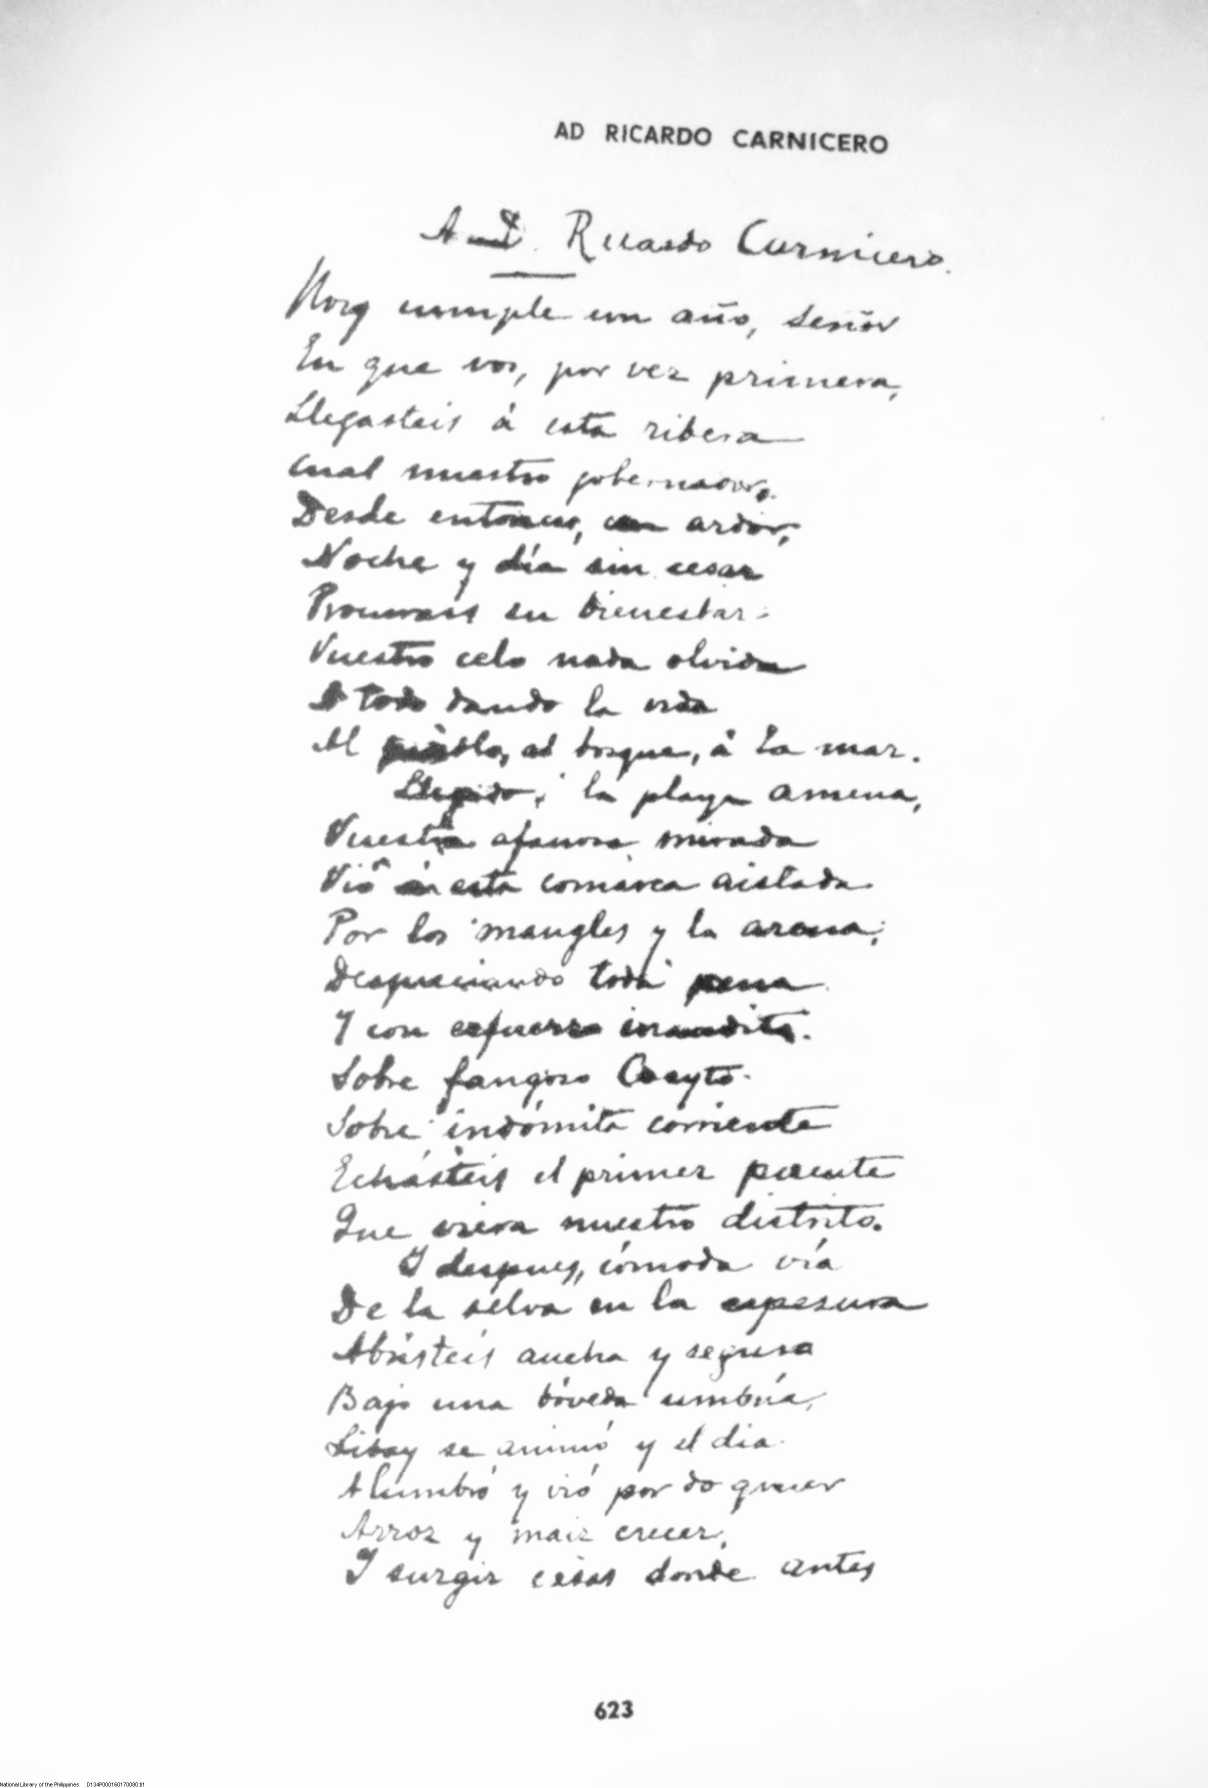 AD RICARDO CARNICERO
A D. Ricardo Carnicero.
Hoy cumple un año, señor
En que vos, por vez primera,
Llegasteis á esta ribera
Cual nuestro gobernador.
Desde entonces, con ardor,
Noche y día sin cesar
Procurais su bienestar:
Vuestro celo nada olvida
A todo dando la vida
Al pueblo, al bosque, á la mar.
Llegado á la playa amena,
Vuestra afanosa mirada
Vió en esta comarca aislada
Por los mangles y la arena;
Despreciando toda pena
Y con esfuerzo inaudito.
Sobre fangoso Cocyto.
Sobre indómita corriente
Echásteis el primer puente
Que viera nuestro distrito.
Y despues, cómoda vía
De la selva en la espesura
Abristeis ancha y segura
Bajo una bóveda umbría,
Libay se animó y el dia
Alumbró y vió por do quier
Arroz y maiz crecer,
Y surgir casas donde antes
623
National Library of the Philippines